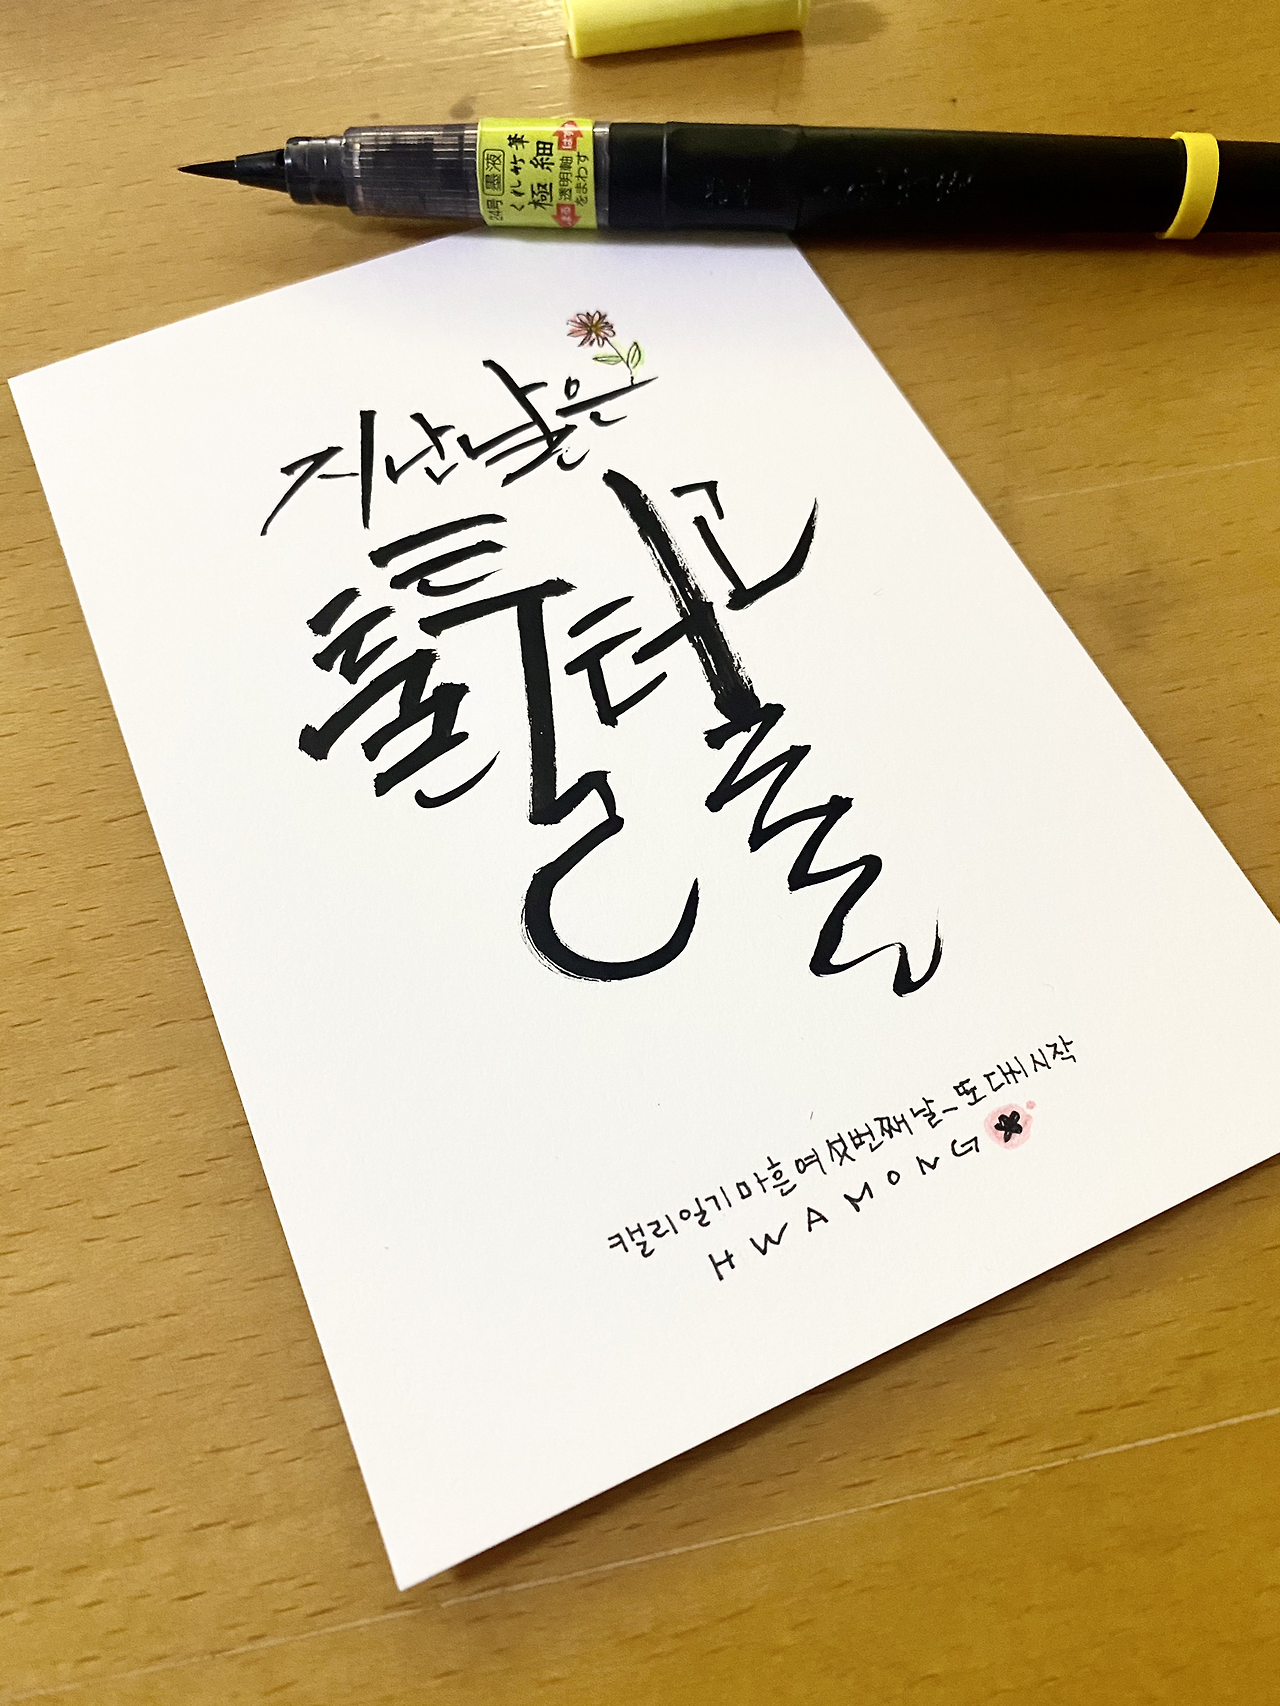 지난날은
툴툴 털고
캘리일기 마흔여섯번째날_또 다시 시작
HWAMONG
24号 墨液
くれ竹筆
極細
透明軸
をまわす